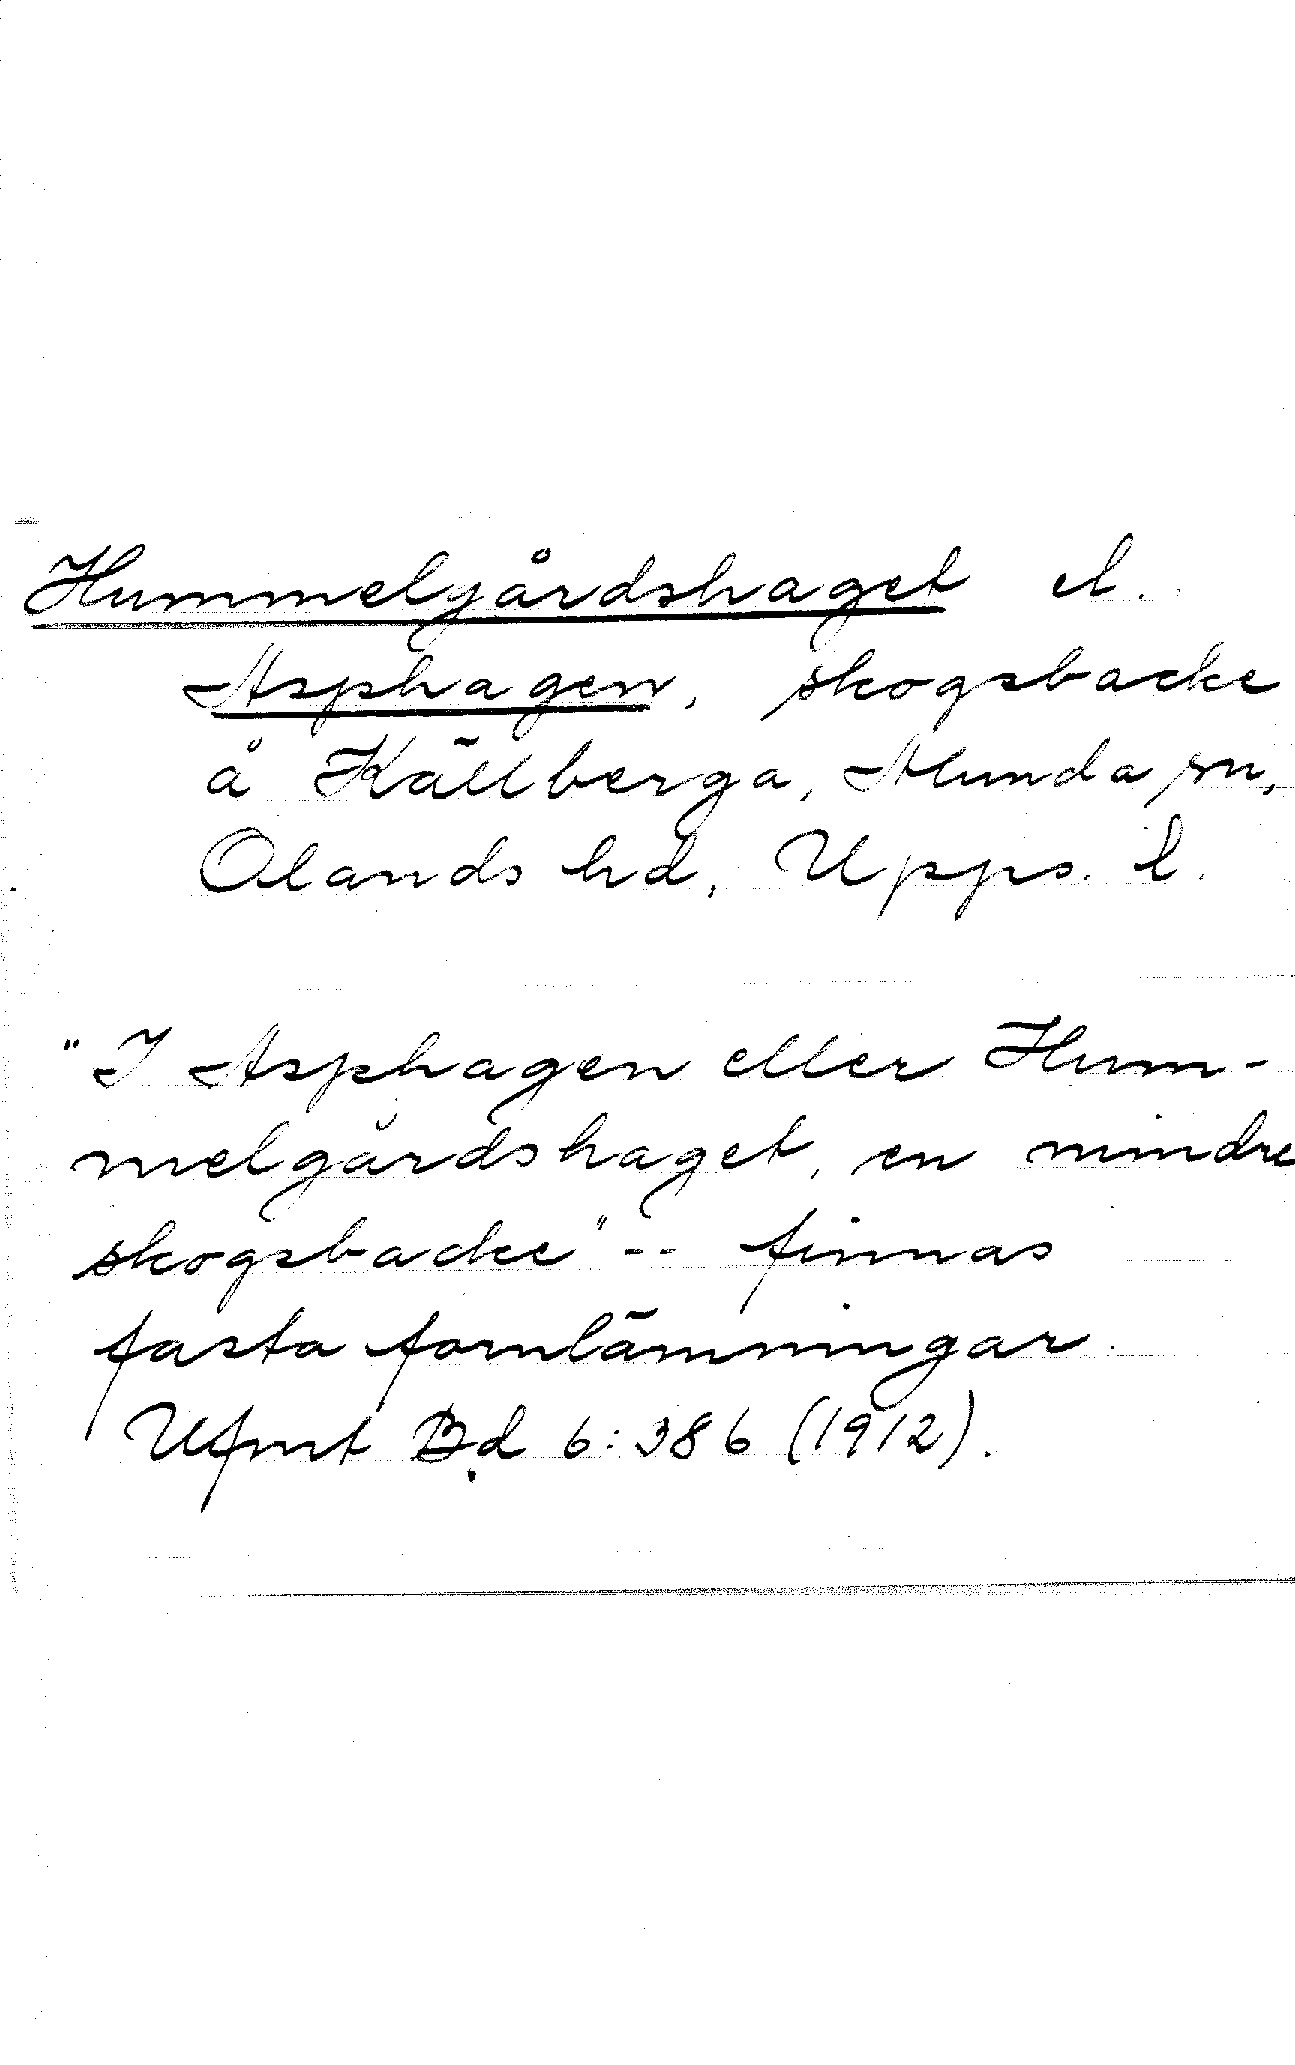 Hummelgårdshaget el.
Asphagen, skogsbacke
å Källberga, Alunda sn,
Olands hd, Upps. l.
"I Asphagen eller Hum-
melgårdshaget, en mindre
skogsbacke" -- finnas
fasta fornlämningar.
Ufmt Bd 6:386 (1912).